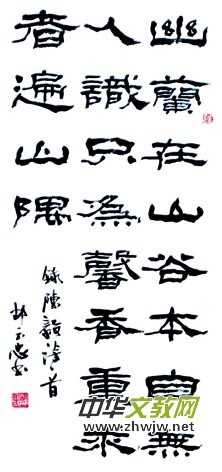 幽蘭在山谷本自無
人識只為馨香重求
者遍山隅
錄陳毅詩首
中华文教网
www.zhwjw.net